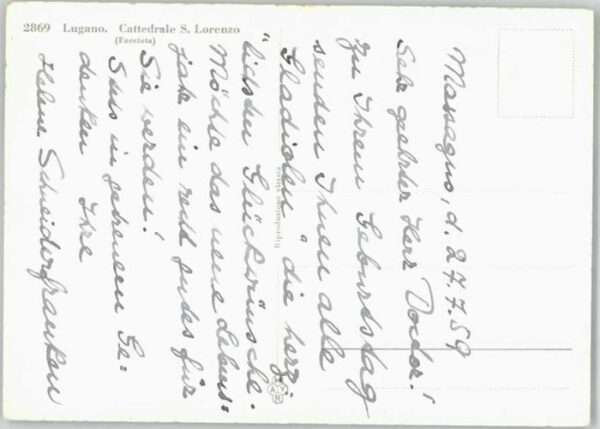 2869 Lugano. Cattedrale S. Lorenzo
(Facciata)
Massagno, d. 27.7.59
Sehr geehrter Herr Doctor!
Zu Ihrem Geburtstag
senden Ihnen alle
"Gladiolen" die herz-
lichsten Glückwünsche.
Möchte das neue Lebens-
jahr ein recht gutes für
Sie werden!
Stets in getreuem Ge-
denken Ihre
Helene Schneiderfranken